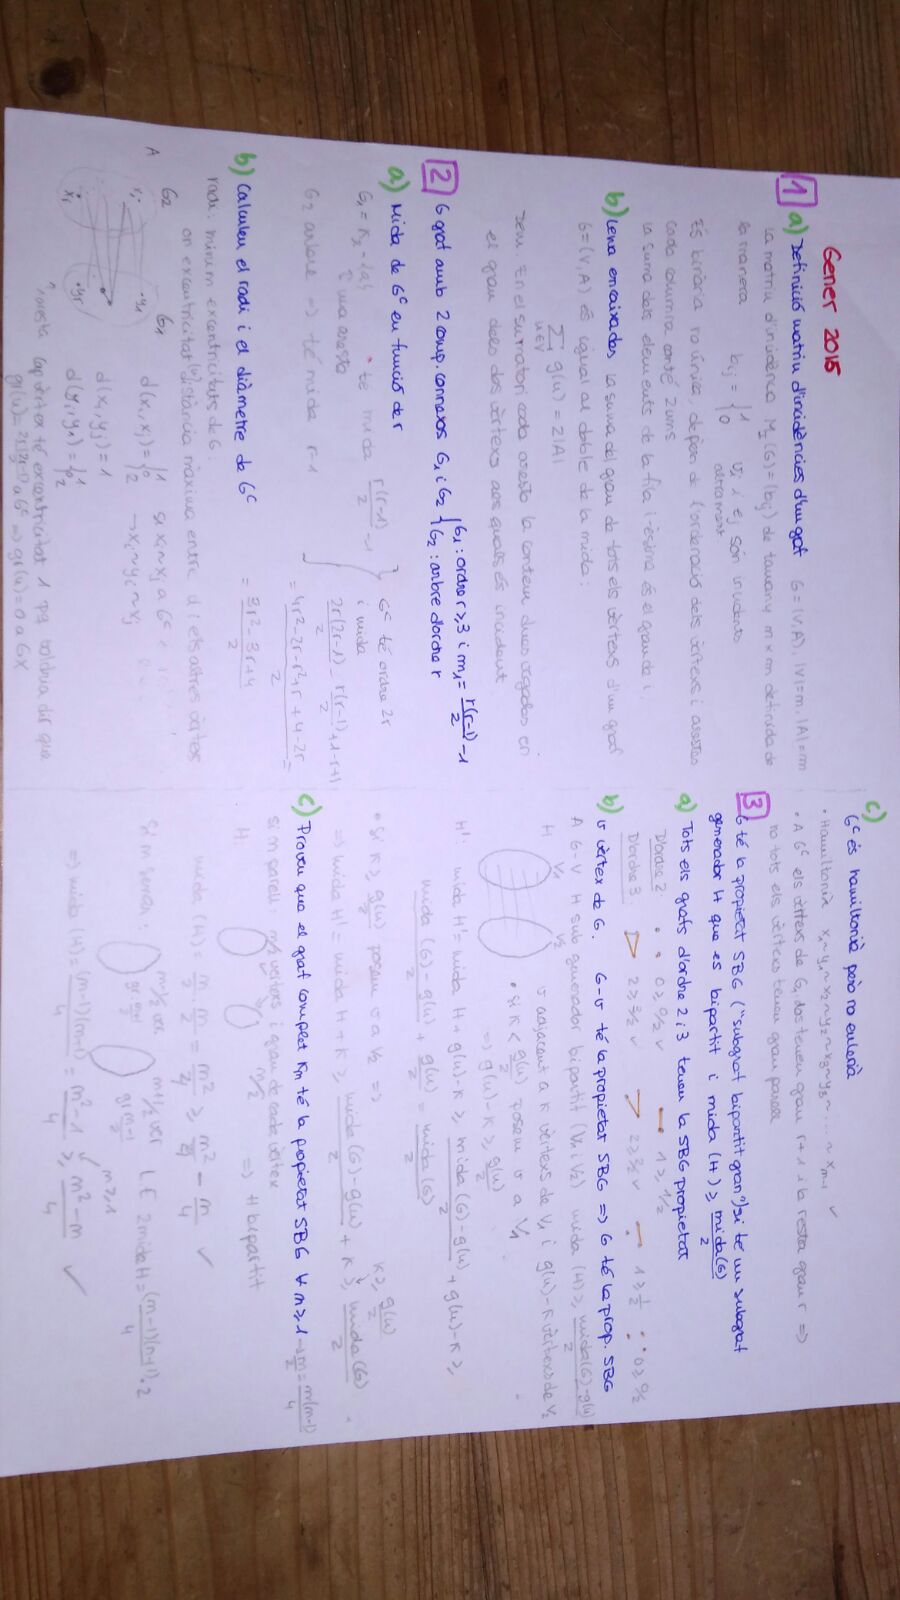 Gener 2015
1 a) Definició matriu d'incidències d'un graf G = (V,A), |V|=n, |A|=m
la matriu d'incidència M_I(G) = (b_ij) de tamany n × m definida de
la manera b_ij = { 1 v_i i e_j són incidents
0 altrament
És binària no única, depèn de l'ordenació dels vèrtexs i arestes
Cada columna conté 2 uns
la suma dels elements de la fila i-èsima és el grau de i
b) Lema encaixades la suma del grau de tots els vèrtexs d'un graf
G=(V,A) és igual al doble de la mida:
∑ g(u) = 2|A|
u∈V
Dem En el sumatori cada aresta la contem dues vegades en
el grau dels dos vèrtexs als quals és incident
2 G graf amb 2 comp. connexos G1 i G2 { G1: ordre r≥3 i m1 = r(r-1)/2 - 1
G2: arbre d'ordre r
a) Mida de G^c en funció de r
G1 = K2 - {a} • té mida r(r-1)/2 - 1
una aresta
G2 arbre ⇒ té mida r-1
G^c té ordre 2r
i mida
2r(2r-1)/2 - r(r-1)/2 + 1 - r + 1
= 4r² - 2r - r² + r + 4 - 2r / 2 =
= 3r² - 3r + 4 / 2
b) Calculeu el radi i el diàmetre de G^c
radi: mínim excentricitats de G.
on excentricitat (u) distància màxima entre u i els altres vèrtexs
A G2 G1
d(x_i, x_j) = { 1 si x_i ~ x_j a G^c
2 → x_i ~ y_i ~ x_j
d(x_i, y_j) = 1
d(y_i, y_j) = { 1
2
cap vèrtex té excentricitat 1 pq voldria dir que
gr(u) = 2r-1 a G^c ⇒ gr(u) = 0 a G X
c) G^c és hamiltonià però no eulerià
• Hamiltonià x1 ~ y1 ~ x2 ~ y2 ~ x3 ~ y3 ~ ... ~ x_n-1 ✓
• A G^c els vèrtexs de G1 dos tenen grau r+1 i la resta grau r ⇒
no tots els vèrtexs tenen grau parell
3 G té la propietat SBG ("subgraf bipartit gran") si té un subgraf
generador H que es bipartit i mida (H) ≥ mida(G)/2
a) Tots els grafs d'ordre 2 i 3 tenen la SBG propietat
D'ordre 2 0 ≥ 0/2 ✓ 1 ≥ 1/2
D'ordre 3: 2 ≥ 3/2 ✓ 2 ≥ 2/2 ✓ 1 ≥ 1/2 0 ≥ 0/2
b) v vèrtex de G. G-v té la propietat SBG ⇒ G té la prop. SBG
A G-v H sub generador bipartit (V1 i V2) mida (H) ≥ mida(G) - g(u) / 2
H V1 V2 v adjacent a k vèrtexs de V1 i g(u)-k vèrtexs de V2
• Si k < g(u)/2 posem v a V1
⇒ g(u)-k ≥ g(u)/2
H': mida H' = mida H + g(u)-k ≥ mida(G)-g(u)/2 + g(u)-k ≥
mida(G)-g(u)/2 + g(u)/2 = mida(G)/2
• Si k ≥ g(u)/2 posem v a V2 ⇒ k ≥ g(u)/2
⇒ mida H' = mida H + k ≥ mida(G)-g(u)/2 + k ≥ mida(G)/2
c) Proveu que el graf complet Kn té la propietat SBG ∀ n≥1 → m/2 = n(n-1)/4
si n parell: n/2 vèrtexs i grau de cada vèrtex n/2 ⇒ H bipartit
H:
mida (H) = n/2 · n/2 = n²/4 ≥ n²/4 - n/4 ✓
Si n senar: n-1/2 ver gr n+1/2 n+1/2 ver gr n-1/2 L.E 2mida H = (n-1)(n+1)/4 · 2
n≥1
⇒ mida (H) = (n-1)(n+1)/4 = n²-1/4 ≥ n²-n/4 ✓